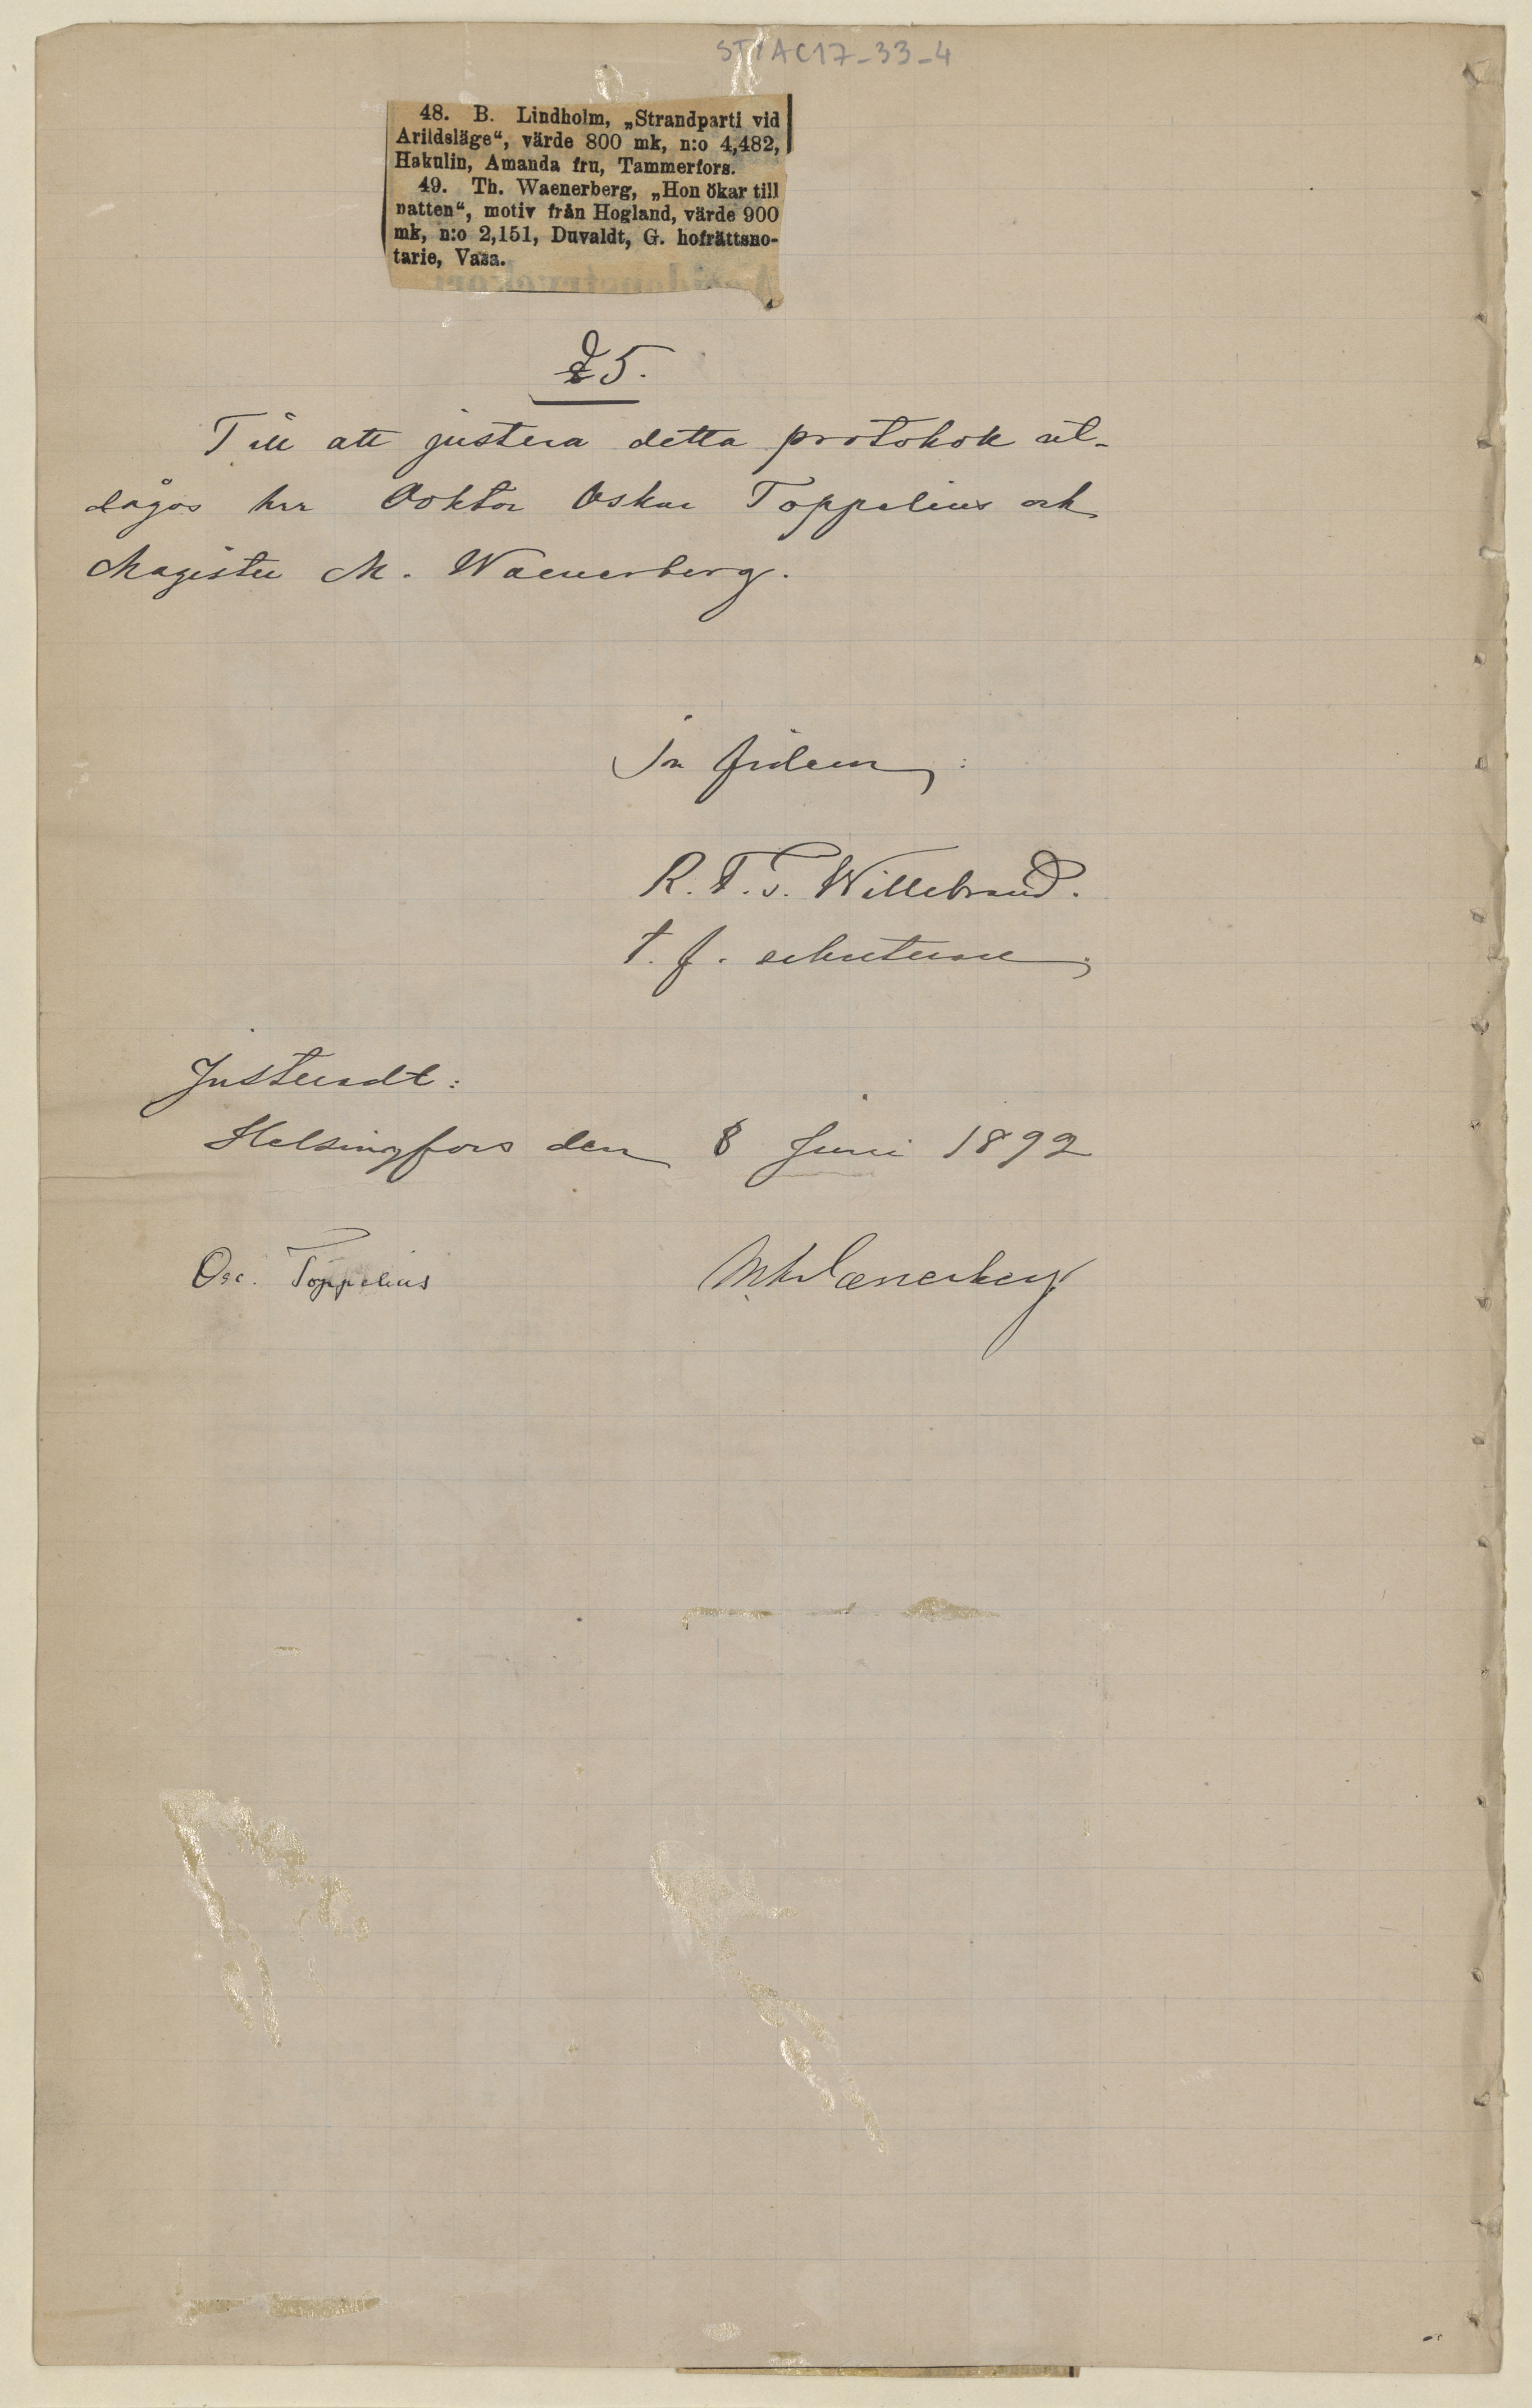 STYAC17-33-4
48. B. Lindholm, „Strandparti vid
Arildsläge“, värde 800 mk, n:o 4,482,
Hakulin, Amanda fru, Tammerfors.
49. Th. Waenerberg, „Hon ökar till
natten“, motiv från Hogland, värde 900
mk, n:o 2,151, Duvaldt, G. hofrättsno-
tarie, Vasa.
§ 5.
Till att justera detta protokoll ut-
sågos hrr Doktor Oskar Toppelius och
Magister M. Waenerberg.
In fidem:
R. F. v. Willebrand.
t. f. sekreterare
Justeradt:
Helsingfors den 8 Juni 1892
Osc. Toppelius
M Waenerberg